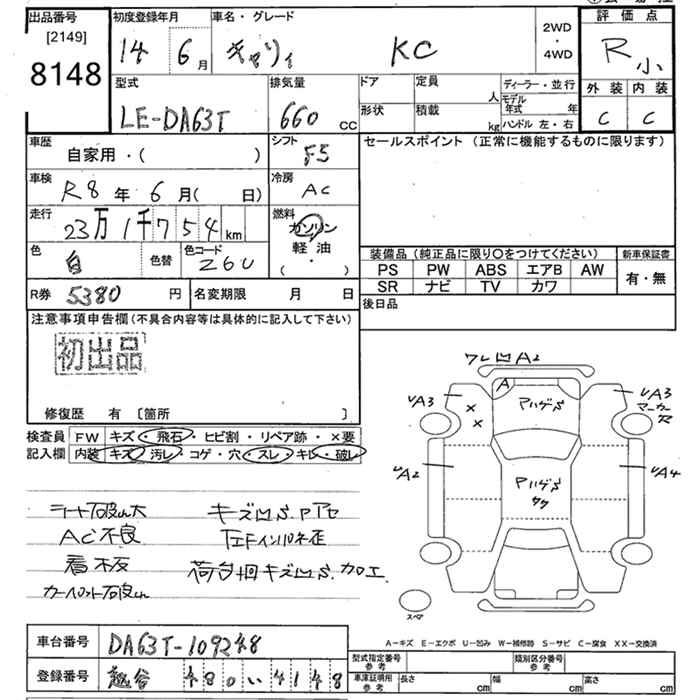 出品番号
[2149]
8148
初度登録年月
14 6月
車名・グレード
キャリィ KC
2WD
・
4WD
評価点
R小
外装 内装
C C
型式
LE-DA63T
排気量
660 cc
ドア
形状
定員
人
積載
kg
ディーラー・並行
モデル年式 年
ハンドル 左・右
車歴
自家用・( )
シフト
F5
セールスポイント (正常に機能するものに限ります)
車検
R8年6月( 日)
冷房
AC
走行
23万1千754km
燃料
ガソリン
軽油
( ・ )
色
白
色替
色コード
26U
装備品 (純正品に限り〇をつけてください)
PS PW ABS エアB AW
SR ナビ TV カワ
新車保証書
有・無
R券 5380円
名変期限 月 日
後日品
注意事項申告欄(不具合内容等は具体的に記入して下さい)
初出品
修復歴 有 [箇所 ]
検査員
記入欄
FW キズ・飛石・ヒビ割・リペア跡・×要
内装 キズ・汚レ・コゲ・穴・スレ・キレ・破レ
シート破れ大
AC不良
看板
カーペット破れ
キズ凹S.P アセ
荷台回キズ凹S.加工
ワレ凹A2
A
UA3
UA3
マーカーR
アハゲS
UA2
UA4
アハゲS
サケ
スペア
A-キズ E-エクボ U-凹み W-補修跡 S-サビ C-腐食 XX-交換済
車台番号 DA63T-109248
登録番号 越谷 480 い 4148
型式指定番号
参考
類別区分番号
参考
車庫証明用
参考
長さ cm
幅 cm
高さ cm